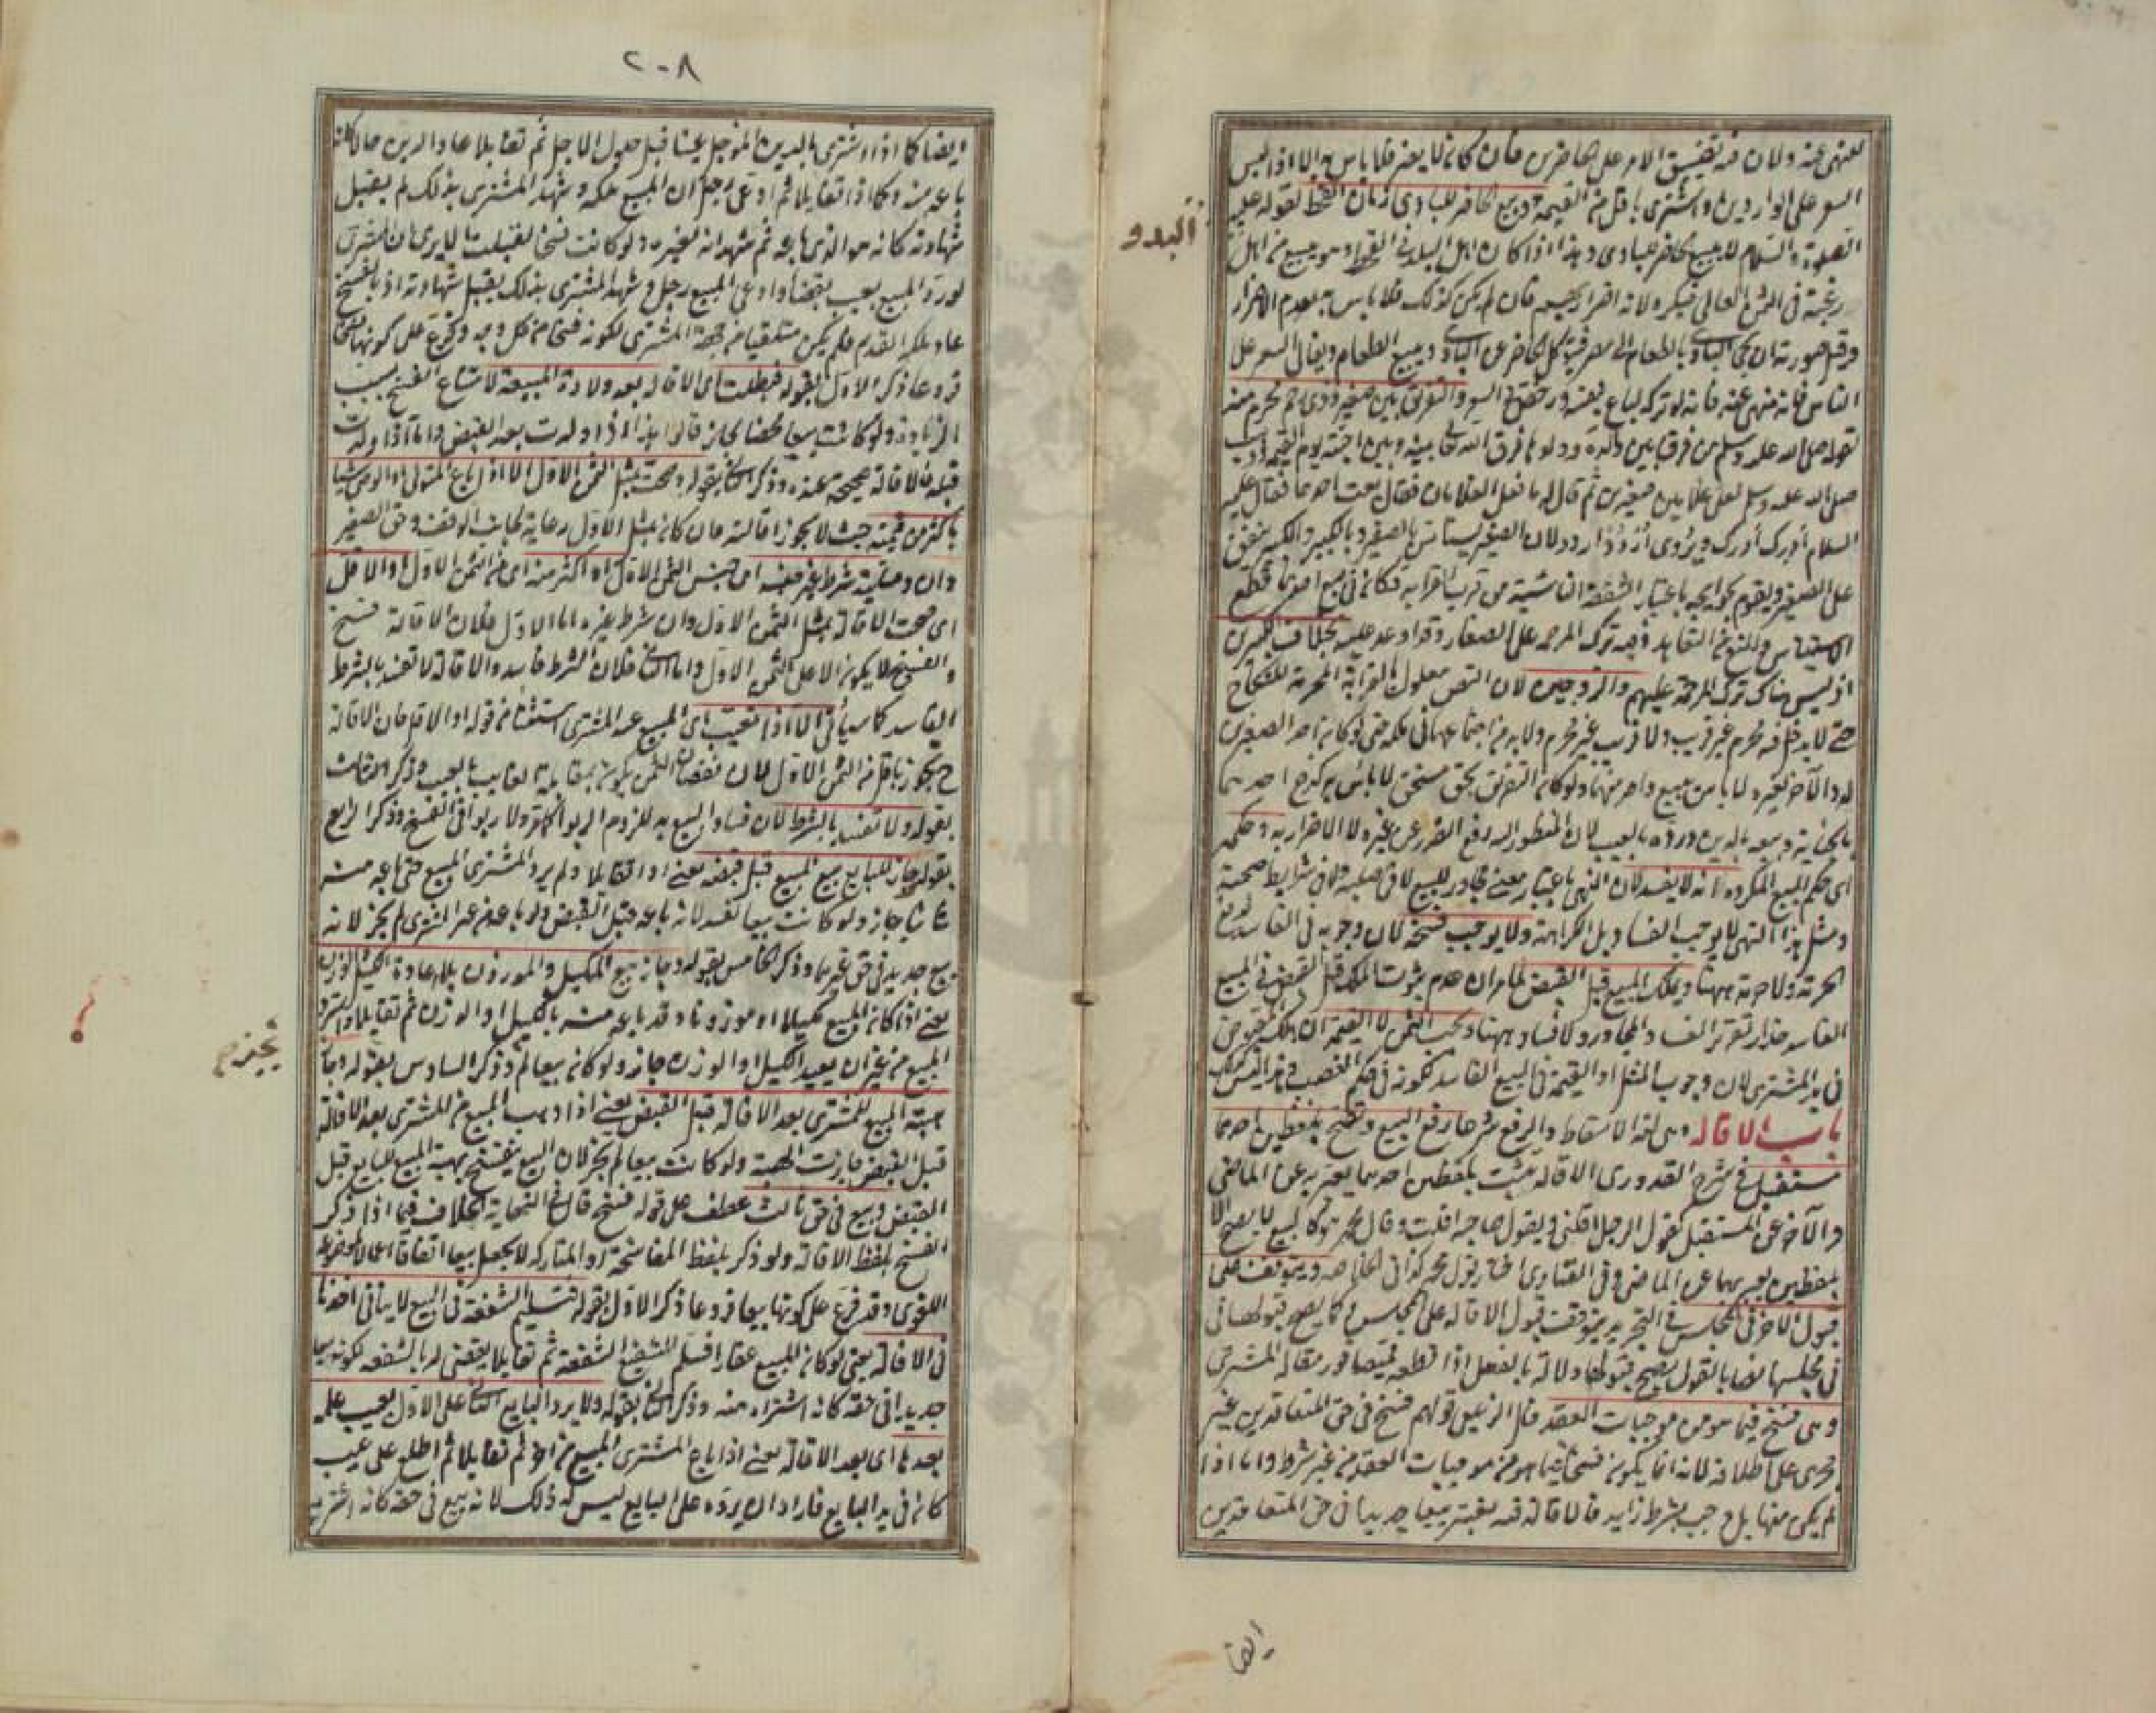 للنهي عنه ولان فيه تضييق الامر على الحاضرين فان كان لا يضر فلا باس به الا اذا لبس
السعر على الواردين واشترى باقل من القيمة وبيع الحاضر للبادي زمان القحط لقوله عليه
البدو
الصلوة والسلام لا يبيع الحاضر للبادي وهذا اذا كان اهل البلد في القحط وهو يبيع من اهل
رغبة في الثمن الغالي فيكره لانه اضرار بهم فان لم يكن كذلك فلا باس به لعدم الاضرار
وقيل صورته ان يجئ البادي بالطعام الى مصر فيتوكل الحاضر عن البادي ويبيع الطعام ويغالي السعر على
الناس فانه منهي عنه فانه لو تركه لباع بنفسه ورخص في السعر والتفريق بين صغير وذي رحم محرم منه
لقوله صلى الله عليه وسلم من فرق بين والدة وولدها فرق الله تعالى بينه وبين احبته يوم القيمة ووهب
صلى الله عليه وسلم لعلي غلامين صغيرين ثم قال له ما فعل الغلامان فقال بعت احدهما فقال عليه
السلام ادرك ادرك ويروى اردد اردد ولان الصغير يستانس بالصغير وبالكبير والكبير يشفق
على الصغير ويقوم بحوايجه باعتبار الشفقة الناشية من قرب القرابة فكان في بيع احدهما قطع
الاستيناس والمنع من التعاهد وفيه ترك المرحمة على الصغار وقد اوعد عليه بخلاف الكبيرين
اذ ليس هناك ترك المرحمة عليهم والزوجين لان النص معلول بالقرابة المحرمة للنكاح
حتى لا يدخل فيه محرم غير قريب ولا قريب غير محرم ولا بد من اجتماعهما في ملكه حتى لو كان احد الصغيرين
له والآخر لغيره لا باس ببيع واحد منهما ولو كان التفريق بحق مستحق لا باس به كدفع احدهما
بالجناية وبيعه بالدين ورده بالعيب لان المنظور اليه دفع الضرر عن غيره لا الاضرار به وحكمه
اى حكم البيع المكروه انه لا يفسد لان النهي باعتبار معنى مجاور للبيع لا في صلبه ولا في شرايط صحته
ومثل هذا النهي لا يوجب الفساد بل الكراهة ولا يوجب فسخه لان وجوبه في الفاسد لدفع
الحرمة ولا حرمة ههنا ويملك المبيع قبل القبض لما مر ان عدم ثبوت الملك قبل القبض في البيع
الفاسد حذار تقرر الفساد المجاور ولا فساد ههنا ويجب الثمن لا القيمة ان هلك المقبوض
في يد المشتري لان وجوب المثل او القيمة في البيع الفاسد لكونه في حكم الغصب وهذا ليس كذلك
باب الاقالة وهي لغة الاسقاط والرفع وشرعا رفع البيع وتصح بلفظين احدهما
مستقبل في شرح القدوري الاقالة تثبت بلفظين احدهما يعبر به عن الماضي
والآخر عن المستقبل كقول الرجل اقلني ويقول صاحبه اقلت وقال محمد هو كالبيع لا يصح الا
بلفظين يعبر بهما عن الماضي وفي الفتاوى اختار قول محمد كذا في الخلاصة ويتوقف على
قبول الاخر في المجلس في التجريد يتوقف قبول الاقالة على المجلس كما يصح قبولها في
في مجلسها نصا بالقول يصح قبولها دلالة بالفعل اذا قطعه قميصا فور مقالة المشتري
وهي فسخ فيما هو من موجبات العقد قال الزيلعي قولهم فسخ في حق المتعاقدين غير
مجرى على اطلاقه لانه انما يكون فسخا فيما هو من موجبات العقد من غير شرط واما اذا
لم يكن منها بل وجب بشرط زايد فالاقالة فيه تعتبر بيعا جديدا في حق المتعاقدين
ايضا
٢٠٨
ايضا كما اذا اشترى بالدين المؤجل عينا قبل حلول الاجل ثم تقايلا عاد الدين حالا كانه
باعه منه وكما اذا تقايلا ثم ادعى رجل ان المبيع ملكه وشهد المشتري بذلك لم يقبل
شهادته كانه هو الذي باعه ثم شهد انه لغيره ولو كانت فسخا لقبلت الا يرى ان المشتري
لو رد المبيع بعيب بقضاء وادعى المبيع رجل وشهد المشتري بذلك يقبل شهادته اذ بالفسخ
عاد ملكه القديم فلم يكن متلقيا من جهة المشتري لكونه فسخا من كل وجه وفرع على كونها فسخا
فروعا ذكر الاول بقوله فبطلت اى الاقالة بعد ولادة المبيعة لامتناع الفسخ بسبب
الزيادة ولو كانت بيعا محضا لجاز قالوا هذا اذا ولدت بعد القبض واما اذا ولدت
قبله فالاقالة صحيحة عنده وذكر الثاني بقوله وصحت بمثل الثمن الاول الا اذا باع المتولي او الوصي شيئا
باكثر من قيمته حيث لا يجوز اقالته وان كان بمثل الاول رعاية لجانب الوقف وحق الصغير
وان وصلية شرط غير جنسه اى جنس الثمن الاول او اكثر منه اى من الثمن الاول او الاقل
اى صحت الاقالة بمثل الثمن الاول وان شرط غيره اما الاول فلان الاقالة فسخ
والفسخ لا يكون الا على الثمن الاول واما الثاني فلان الشرط فاسد والاقالة لا تفسد بالشرط
الفاسد كما سياتي الا اذا تعيب اى المبيع عند المشتري استثناء من قوله او الاقل فان الاقالة
ح تجوز باقل من الثمن الاول لان نقصان الثمن يكون بمقابلة الفايت بالعيب وذكر الثالث
بقوله ولا تفسد بالشرط لان فساد البيع به للزوم الربوا كما مر ولا ربوا في الفسخ وذكر الرابع
بقوله وجاز للبايع بيع المبيع قبل قبضه يعني اذا تقايلا ولم يرد المشتري المبيع حتى باعه منه
ثانيا جاز ولو كانت بيعا لفسد لانه باعه قبل القبض ولو باعه من غير المشتري لم يجز لانه
بيع جديد في حق غيرهما وذكر الخامس بقوله وجاز بيع المكيل والموزون بلا اعادة الكيل والوزن
يعني اذا كان المبيع مكيلا او موزونا وقد باعه منه بالكيل او الوزن ثم تقايلا واسترد
المبيع من غير ان يعيد الكيل او الوزن جاز ولو كان بيعا لم وذكر السادس بقوله وجاز
يجز صح
هبة المبيع للمشتري بعد الاقالة قبل القبض يعني اذا وهب المبيع من المشتري بعد الاقالة
قبل القبض جازت الهبة ولو كانت بيعا لم يجز لان البيع ينفسخ بهبة المبيع للبايع قبل
القبض وبيع في حق ثالث عطف على قوله فسخ قال في النهاية الخلاف فيما اذا ذكر
الفسخ بلفظ الاقالة ولو ذكر بلفظ المفاسخة او المتاركة لا يجعل بيعا اتفاقا اعمالا لموضوعه
اللغوي وقد فرع على كونها بيعا فروعا ذكر الاول بقوله فتسليم الشفعة في البيع لا ينافي اخذها
في الاقالة يعني لو كان المبيع عقارا فسلم الشفيع الشفعة ثم تقايلا يقضى له بالشفعة لكونه بيعا
جديدا في حقه كانه اشتراه منه وذكر الثاني بقوله ولا يرد البايع الثاني على الاول بعيب علمه
بعدها اى بعد الاقالة يعني اذا باع المشتري المبيع من اخر ثم تقايلا ثم اطلع على عيب
كان في يد البايع فاراد ان يرده على البايع ليس له ذلك لانه بيع في حقه كانه اشتراه